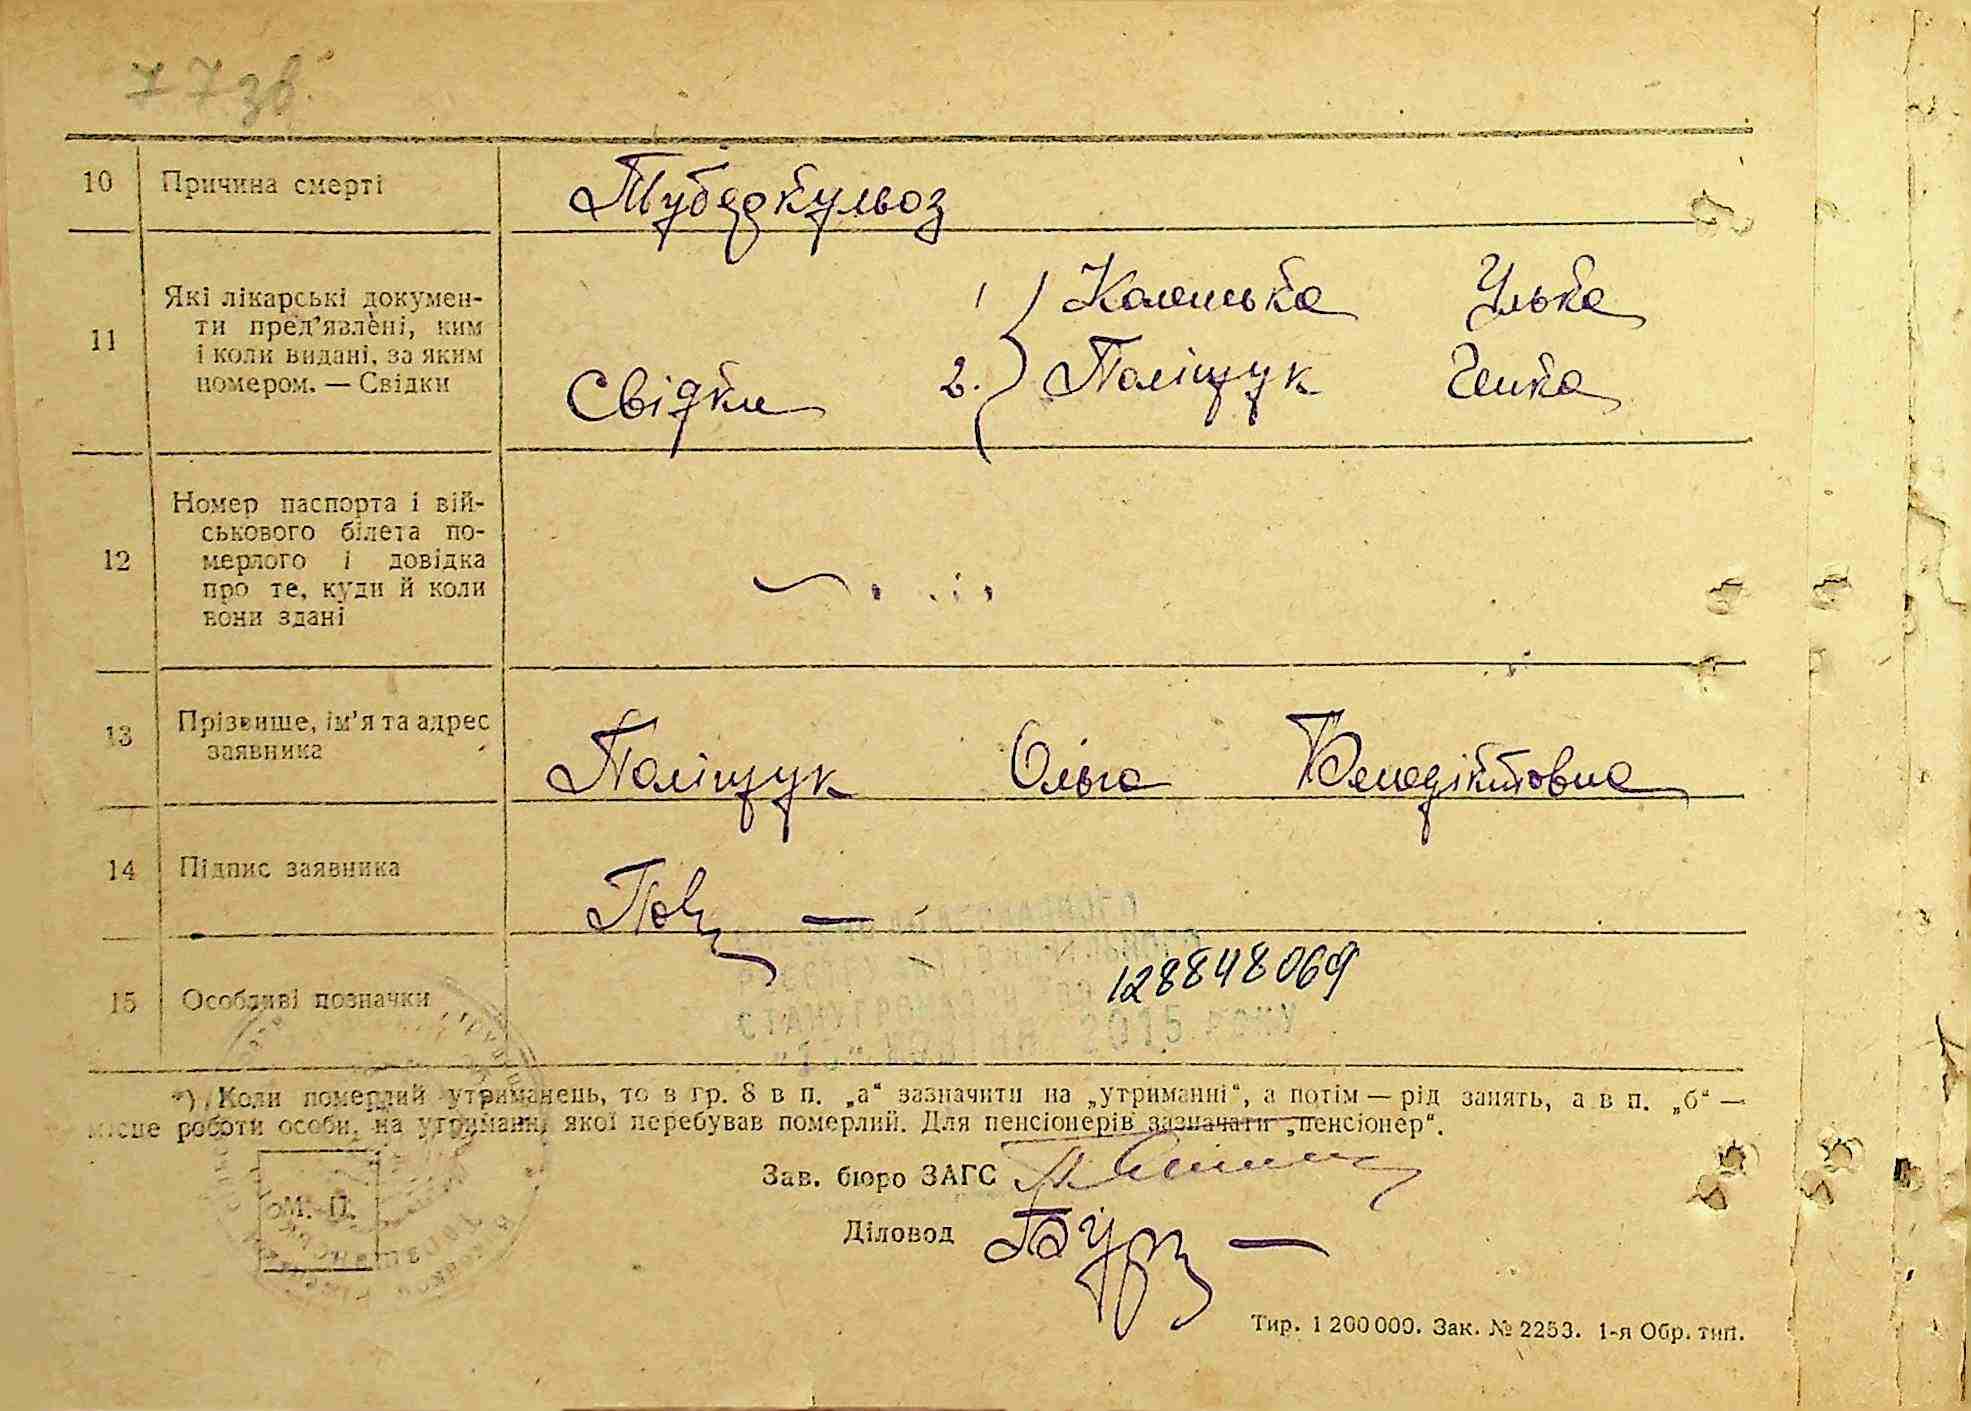 77 зв.
10 Причина смерті Тубэркульоз
11 Які лікарські докумен-
ти пред'явлені, ким
і коли видані, за яким
номером. — Свідки
1 Улька
Свідки 2. Поліщук
12 Номер паспорта і вій-
ськового білета по-
мерлого і довідка
про те, куди й коли
вони здані
13 Прізвище, ім'я та адрес
заявника
Поліщук Ольга Венедіктовна
14 Підпис заявника
15 Особливі позначки
128848069
СТАНУ ГРОМАДЯН
2015 РОКУ
*) Коли померлий утриманець, то в гр. 8 в п. „а“ зазначити на „утриманні“, а потім — рід занять, а в п. „б“ —
місце роботи особи, на утриманні якої перебував померлий. Для пенсіонерів зазначати „пенсіонер“.
Зав. бюро ЗАГС
М. П.
Діловод
Тир. 1 200 000. Зак. № 2253. 1-я Обр. тип.